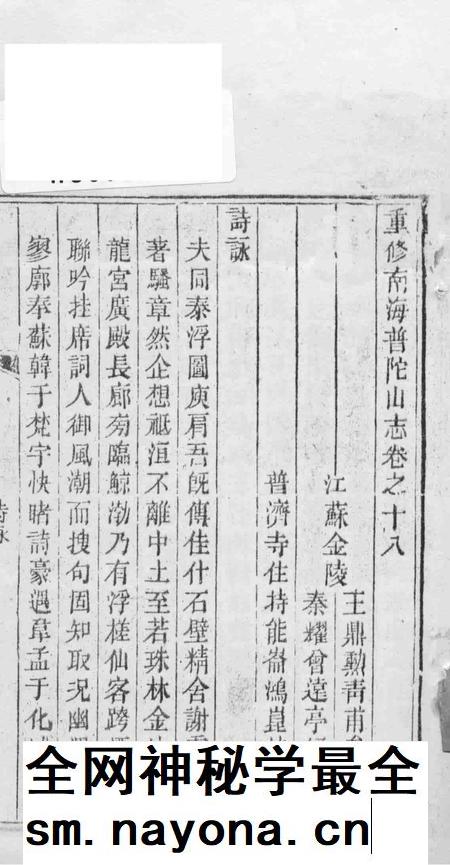 重修南海普陀山志卷之十八
江蘇金陵
王鼎勲青甫
秦耀曾遠亭
普濟寺住持能崙鴻崑
詩詠
夫同泰浮圖庾肩吾既傳佳什石壁精舍謝
著騷章然企想祗洹不離中土至若珠林金
龍宮廣殿長廊旁臨鯨渤乃有浮槎仙客跨
聯吟挂席詞人御風潮而搜句固知取況幽
寥廓奉蘇韓于梵宇快睹詩豪遇草孟于化
詩詠
全网神秘学最全
sm.nayona.cn